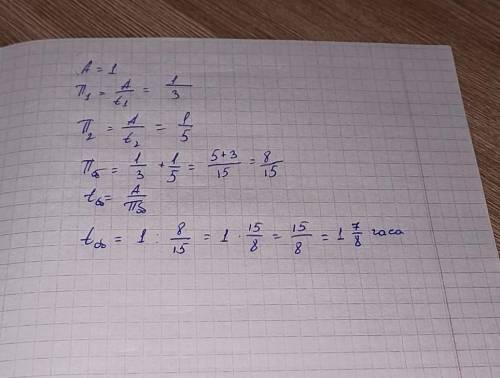 A = 1
П₁ = A/t₁ = 1/3
П₂ = A/t₂ = 1/5
Поб = 1/3 + 1/5 = 5+3/15 = 8/15
tоб = A/Поб
tоб = 1 : 8/15 = 1 · 15/8 = 15/8 = 1 7/8 часа